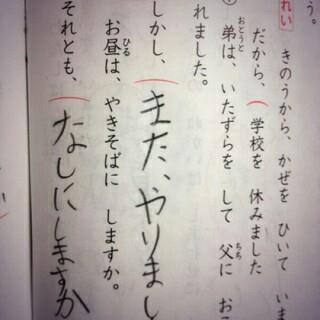 う。
れい
きのうから、かぜを ひいて いま
だから、学校を 休みました
弟は、いたずらを して 父に お
おとうと
ちち
れました。
しかし、また、やりまし
お昼は、やきそばに しますか。
ひる
それとも、なしにしますか